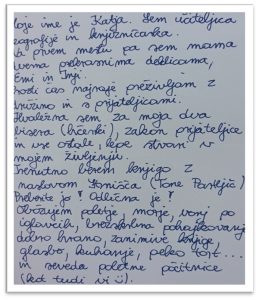 Moje ime je Katja. Sem učiteljica
geografije in knjižničarka.
Na prvem mestu pa sem mama
dvema prekrasnima deklicama,
Emi in Inji.
Prosti čas najraje preživljam z
družino in s prijateljicami.
Hvaležna sem za moja dva
bisera (hčerki), zakon prijateljice
in vse ostale, lepe stvari v
mojem življenju.
Trenutno berem knjigo z
naslovom (Tone Partljič)
Preberite jo! Odlična je!
Obožujem poletje, morje, vonj po
iglavcih, brezskrbna pohajkovanja,
dobro hrano, zanimive knjige,
glasbo, kuhanje, peko tort...
in seveda poletne počitnice
(kot tudi vi ☺).